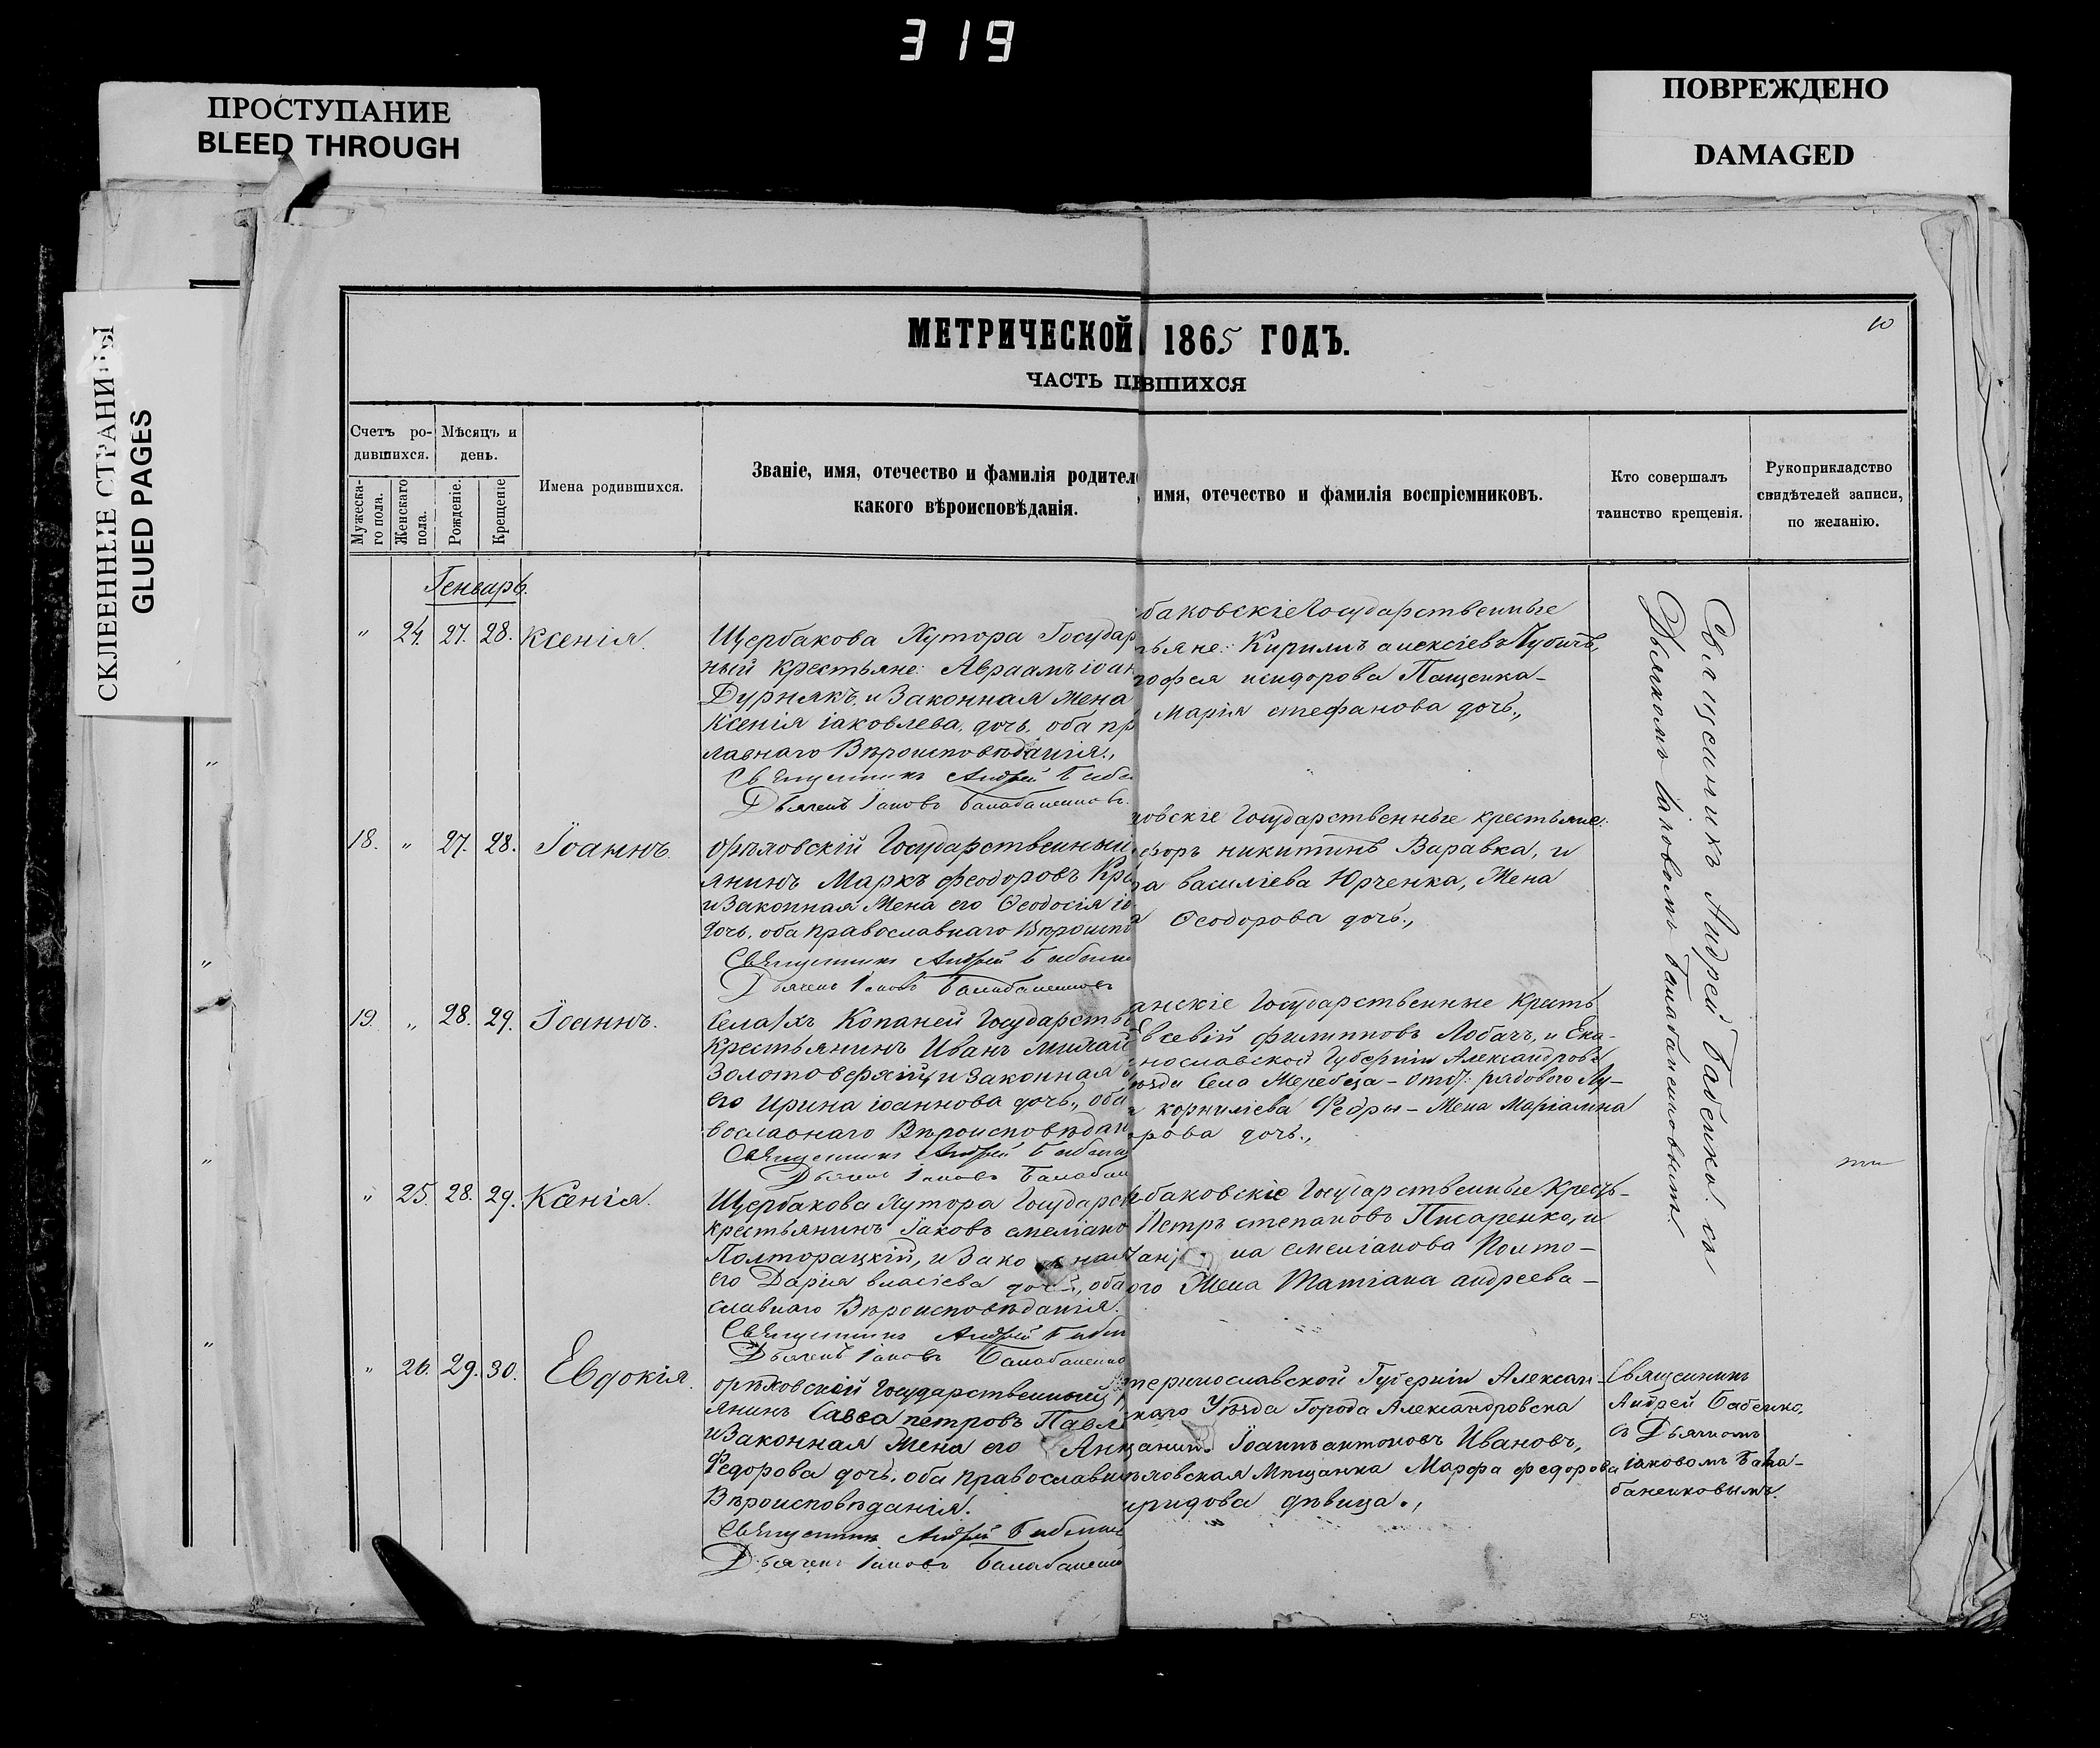 319
ПРОСТУПАНИЕ
BLEED THROUGH
ПОВРЕЖДЕНО
DAMAGED
СКЛЕЕННЫЕ СТРАНИЦЫ
GLUED PAGES
10
МЕТРИЧЕСКОЙ 1865 ГОДЪ.
ЧАСТЬ ПЕ ВШИХСЯ
Счетъ ро-
дившихся.
Мужеска-
го пола.
Женскаго
пола.
Мѣсяцъ и
день.
Рожденіе.
Крещеніе
Имена родившихся.
Званіе, имя, отечество и фамилія родител
какого вѣроисповѣданія.
имя, отечество и фамилія воспріемниковъ.
Кто совершалъ
таинство крещенія.
Рукоприкладство
свидѣтелей записи,
по желанію.
Генварь.
" 24. 27. 28. Ксенія.
Щербакова Хутора Государ
ный крестьяне: Авраамъ іоан
Дурнякъ, и Законная Жена
Ксенія іаковлева, дочь, оба пр
лавнаго Вѣроисповѣданія.,
Священникъ Андрей Бабе
Дьячекъ Іаковъ Балабаненковъ.
баковскіе Государственные
тьяне: Кириллъ алексіевъ Чубичъ,
рофея исидорова Пащенка-
Марія стефанова дочь.,
Священникъ Андрей Бабенко. съ
Дьячкомъ Іаковомъ Балабаненковымъ
18. " 27. 28. Іоаннъ.
орѣховскій Государственный
янинъ Маркъ феодоровъ Кра
и Законная Жена его Ѳеодосія іо
дочь, оба православнаго Вѣроиспо
Священникъ Андрей Бабенко
Дьячекъ Іаковъ Балабаненковъ
ховскіе Государственные крестьяне:
никитинъ Варавка, и
ра василіева Юрченка, Жена
я Ѳеодорова дочь.,
19. " 28. 29. Іоаннъ.
Села Копаней Государств
Крестьянинъ Иванъ Михай
Золотоверхій, и Законная
его Ирина іоаннова дочь., оба
вославнаго Вѣроисповѣдан
Священникъ Андрей Бабенко
Дьячекъ Іаковъ Балабан
анскіе Государственные Кресть
Евсевій филипповъ Лобачъ, и Ека-
нославской Губерніи Александров
ѣзда Села Жеребца - рядового Лу-
корниліева Федры - Жена Маріанна
рова дочь.,
" 25. 28. 29. Ксенія.
Щербакова Хутора Государс
крестьянинъ Іаковъ емеліано
Полторацкій, и Законная
его Дарія власіева дочь, оба
славнаго Вѣроисповѣданія.
Священникъ Андрей Бабен
Дьячекъ Іаковъ Балабаненко
баковскіе Государственные Кресть-
Петръ степановъ Писаренко, и
на емеліанова Полто-
ого Жена Татіана андреева-
" 26. 29. 30. Евдокія.
орѣховскій Государственный
янинъ Савва петровъ Павл
и Законная Жена его Анн
Федорова дочь, оба православн
Вѣроисповѣданія.
Священникъ Андрей Бабенко
Дьячекъ Іаковъ Балабаненко
теринославской Губерніи Алексан-
скаго Уѣзда Города Александровска
щанинъ Іоаннъ антоновъ Ивановъ,
ѣховская Мѣщанка Марфа федорова
дѣвица.,
Священникъ
Андрей Бабенко,
съ Дьячкомъ
іаковомъ Бала-
баненковымъ.